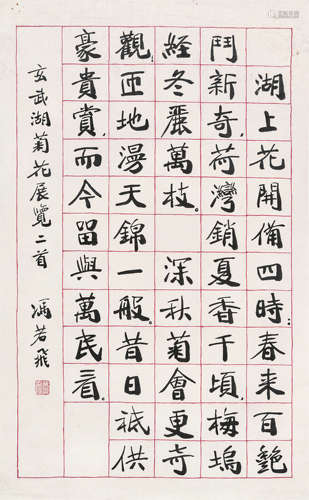 湖上花開備四時；春來百艷
鬥新奇。荷灣銷夏香千頃，梅塢
經冬麗萬枝。 深秋菊會更奇
觀，匝地漫天錦一般。昔日祗供
豪貴賞，而今留與萬民看。
玄武湖菊花展覽二首 馮若飛